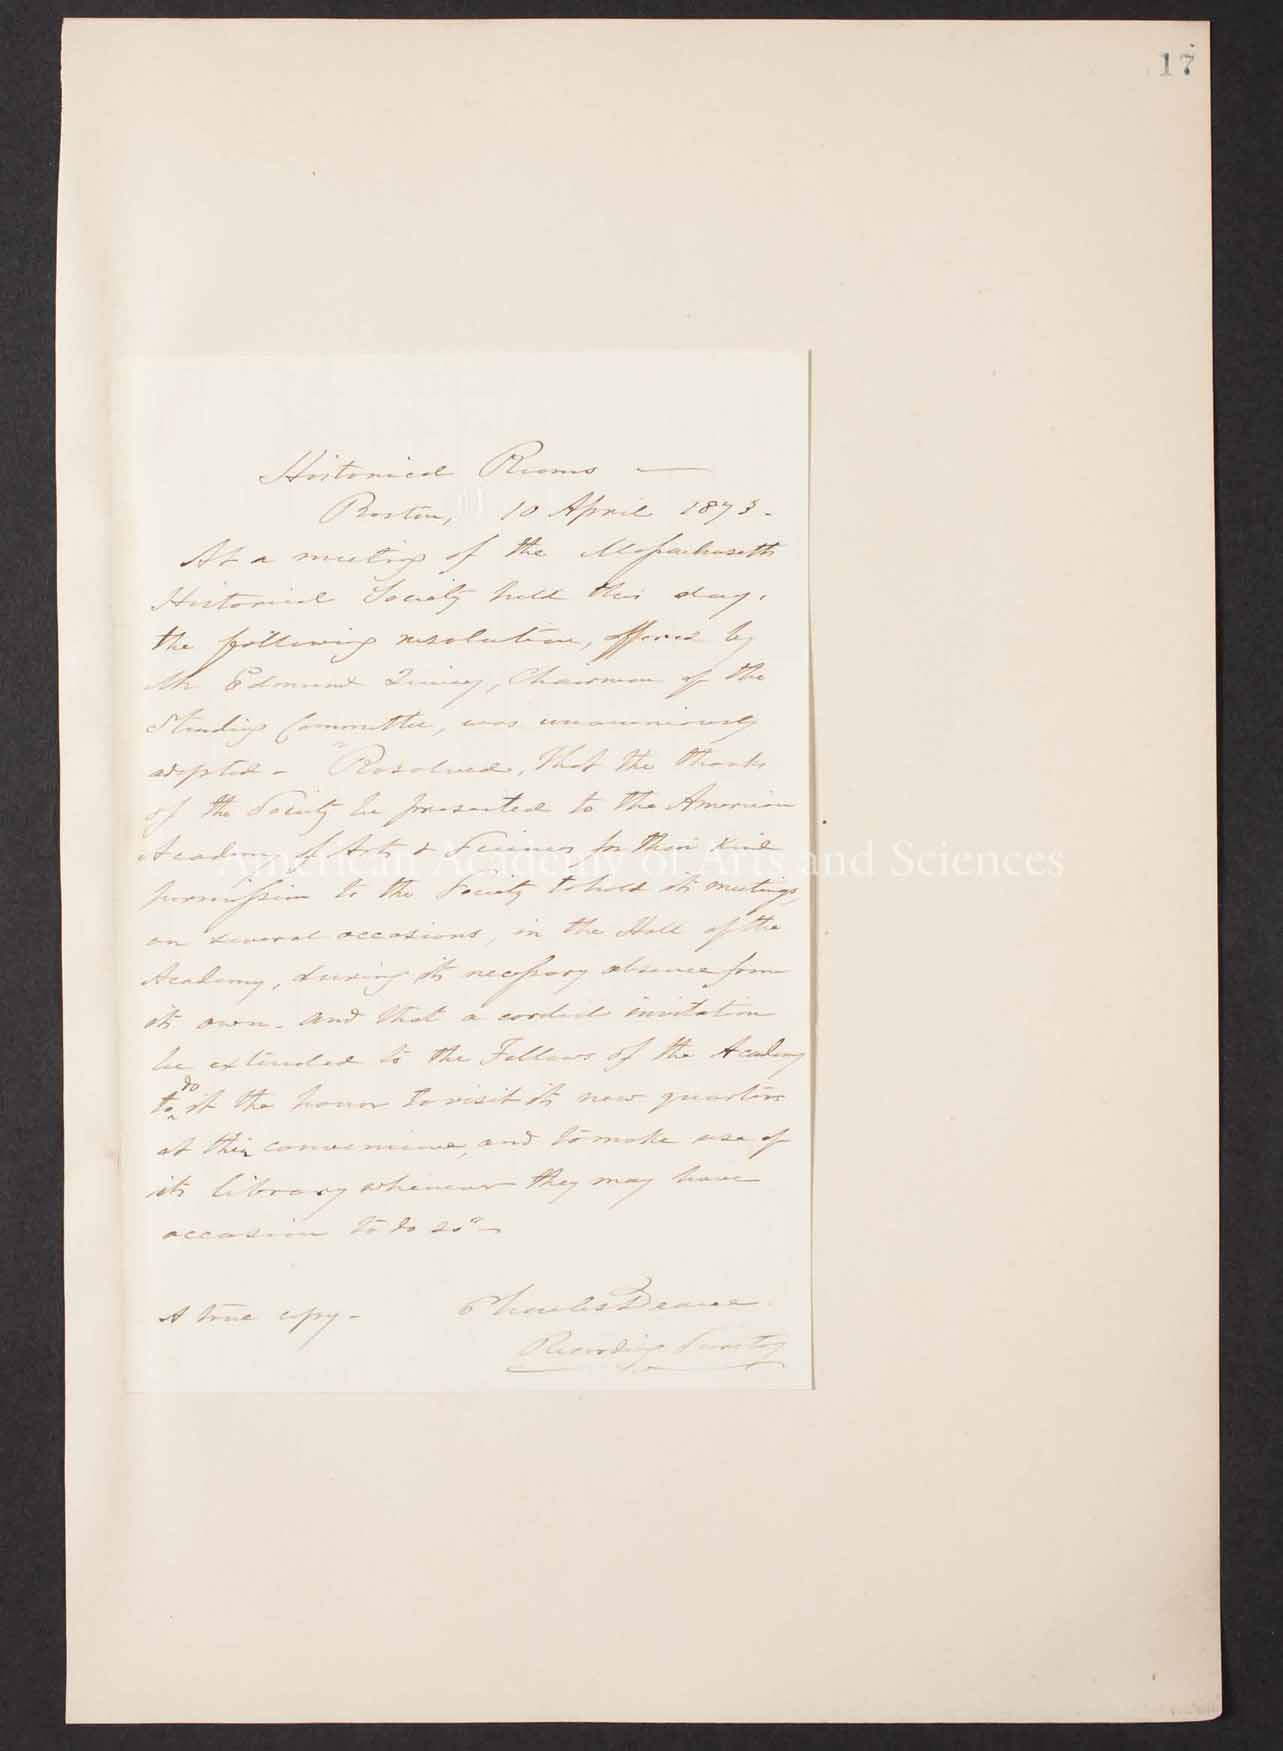 17
Historical Rooms —
Boston, 10 April 1873.
At a meeting of the Massachusetts
Historical Society held this day,
the following resolution, offered by
Mr Edmund Quincy, Chairman of the
Standing Committee, was unanimously
adopted - "Resolved, That the thanks
of the Society be presented to the American
Academy of Arts & Sciences for their kind
American Academy of Arts and Sciences
permission to the Society to hold its meetings,
on several occasions, in the Hall of the
Academy, during its necessary absence from
its own - and that a cordial invitation
be extended to the Fellows of the Academy
to do it the honor to visit its new quarters
at their convenience, and to make use of
its library whenever they may have
occasion to do so" -
A true copy - Charles Deane.
Recording Secretary